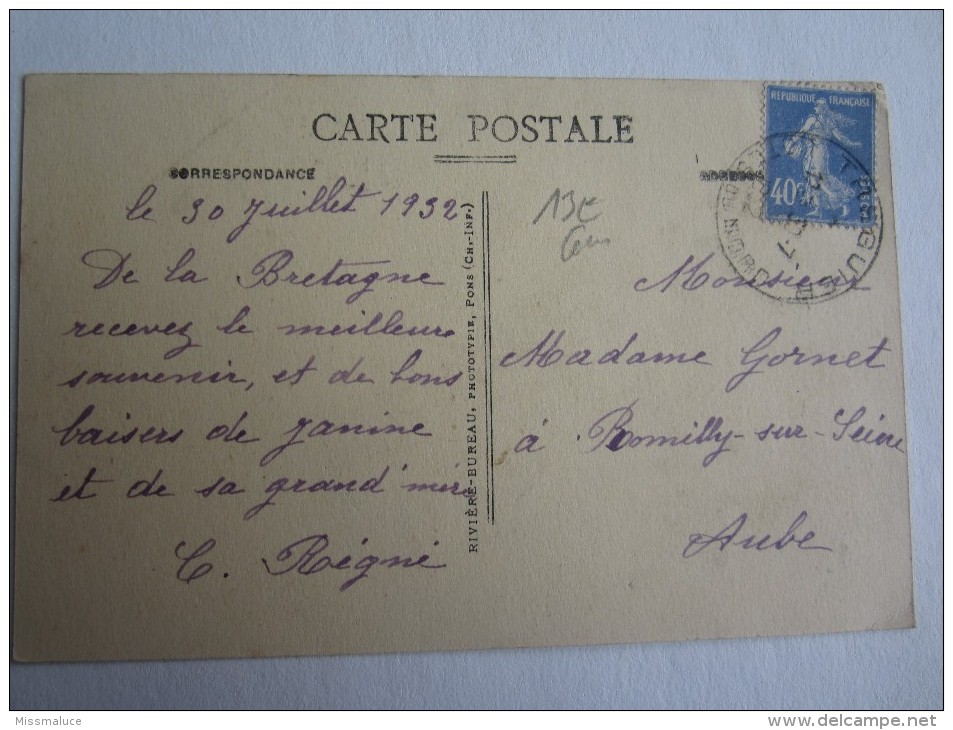 CARTE POSTALE
CORRESPONDANCE
le 30 Juillet 1932
De la Bretagne
recevez le meilleur
souvenir, et de bons
baisers de Janine
et de sa grand'mère
C. Régné
RIVIÈRE-BUREAU, PHOTOTYPIE, PONS (CH.-INF.)
13€
REPUBLIQUE FRANÇAISE
40c
Monsieur
Madame Gornet
à Romilly-sur-Seine
Aube
Missmaluce
www.delcampe.net